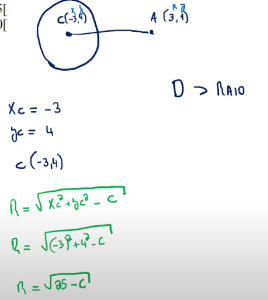 5[
0[
C(-3,4) A (3,1)
x y x y
D > RAIO
xc = -3
yc = 4
C (-3,4)
R = √xc²+yc² - C
R = √(-3)²+4² - C
R = √25 - C